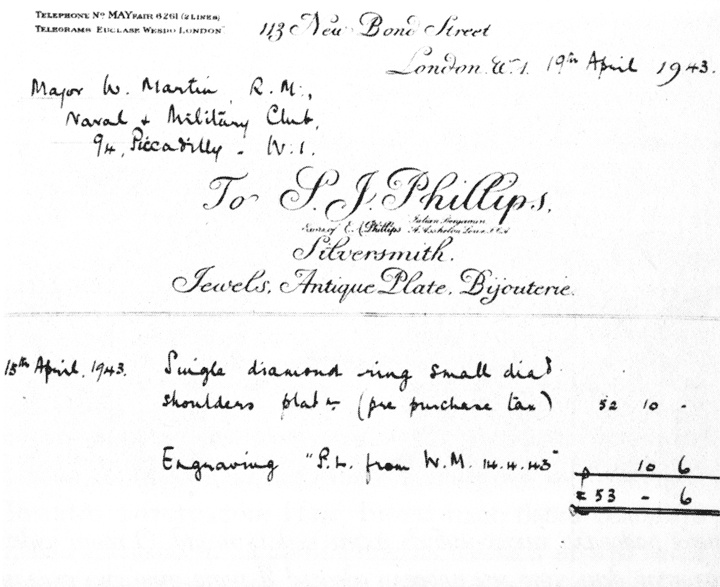 TELEPHONE No MAYFAIR 6261 (2 LINES)
TELEGRAMS EUCLASE WESDO LONDON
113 New Bond Street
London W.1. 19th April 1943.
Major W. Martin, R.M.,
Naval & Military Club,
94, Piccadilly - W.1.
To S.J. Phillips,
of E. Phillips
Silversmith.
Jewels, Antique Plate, Bijouterie.
15th April, 1943. Single diamond ring small diad
shoulders plat (pre purchase tax) 52 10 -
Engraving "P.L. from W.M. 14.4.43" 10 6
£ 53 - 6